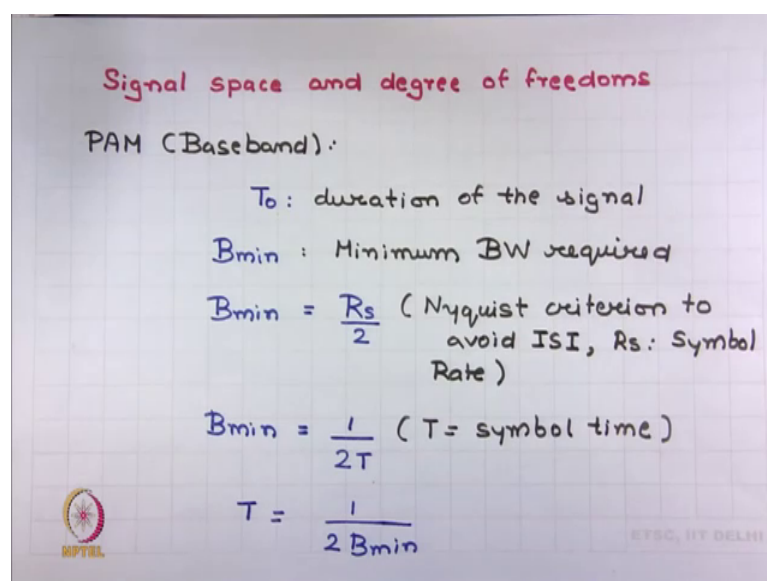 Signal space and degree of freedoms
PAM (Baseband):
To: duration of the signal
Bmin : Minimum BW required
Bmin = Rs/2 (Nyquist criterion to
avoid ISI, Rs: Symbol
Rate)
Bmin = 1/2T (T= symbol time)
T = 1/2 Bmin
NPTEL
ETSC, IIT DELHI